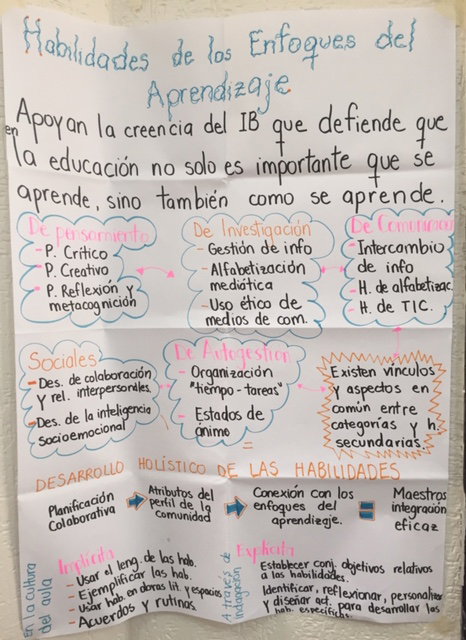 Habilidades de los Enfoques del
Aprendizaje
Apoyan la creencia del IB que defiende que
en
la educación no solo es importante que se
aprende, sino también como se aprende.
De pensamiento
- P. Crítico
- P. Creativo
- P. Reflexión y
metacognición
De Investigación
- Gestión de info
- Alfabetización
mediática
- Uso ético de
medios de com.
De Comunicac
- Intercambio
de info
- H. de alfabetizac.
- H. de TIC.
Sociales
- Des. de colaboración
y rel. interpersonales.
- Des. de la inteligencia
socioemocional
De Autogestion
- Organización
"tiempo - tareas"
- Estados de
ánimo
Existen vínculos
y aspectos en
común entre
categorías y h.
secundarias.
=
DESARROLLO HOLÍSTICO DE LAS HABILIDADES
Planificación
Colaborativa
Atributos del
perfil de la
comunidad
Conexión con los
enfoques del
aprendizaje.
=
Maestros
integración
eficaz
En la cultura
del aula
Implícita
- Usar el leng. de las hab.
- Ejemplificar las hab.
- Usar hab. en obras lit. y espacios
- Acuerdos y rutinas
A través de
indagación
Explícita
Establecer conj. objetivos relativos
a las habilidades.
Identificar, reflexionar, personalizar
y diseñar act. para desarrollar las
hab. específicas.